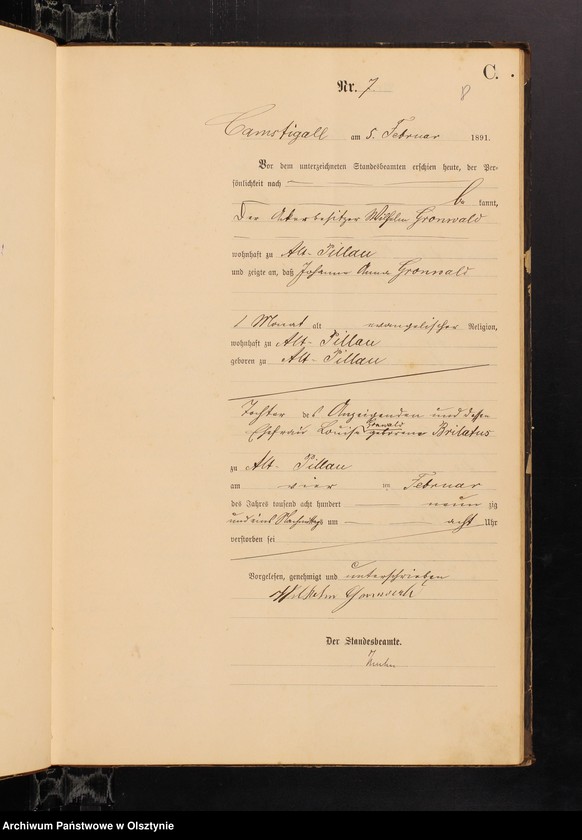 C.
Nr. 7
8
Camstigall am 5. Februar 1891.
Vor dem unterzeichneten Standesbeamten erschien heute, der Per-
sönlichkeit nach
be kannt,
Der Ackerbesitzer Wilhelm Gronwald
wohnhaft zu Alt-Pillau
und zeigte an, daß Johanne Anna Gronwald
1 Monat alt evangelischer Religion,
wohnhaft zu Alt-Pillau
geboren zu Alt-Pillau
Tochter des Anzeigenden und dessen
Ehefrau Louise Gronwald geborene Brilatus
zu Alt-Pillau
am vier ten Februar
des Jahres tausend acht hundert neun zig
und eins Nachmittags um acht Uhr
verstorben sei
Vorgelesen, genehmigt und unterschrieben
Wilhelm Gronwald
Der Standesbeamte.
Archiwum Państwowe w Olsztynie